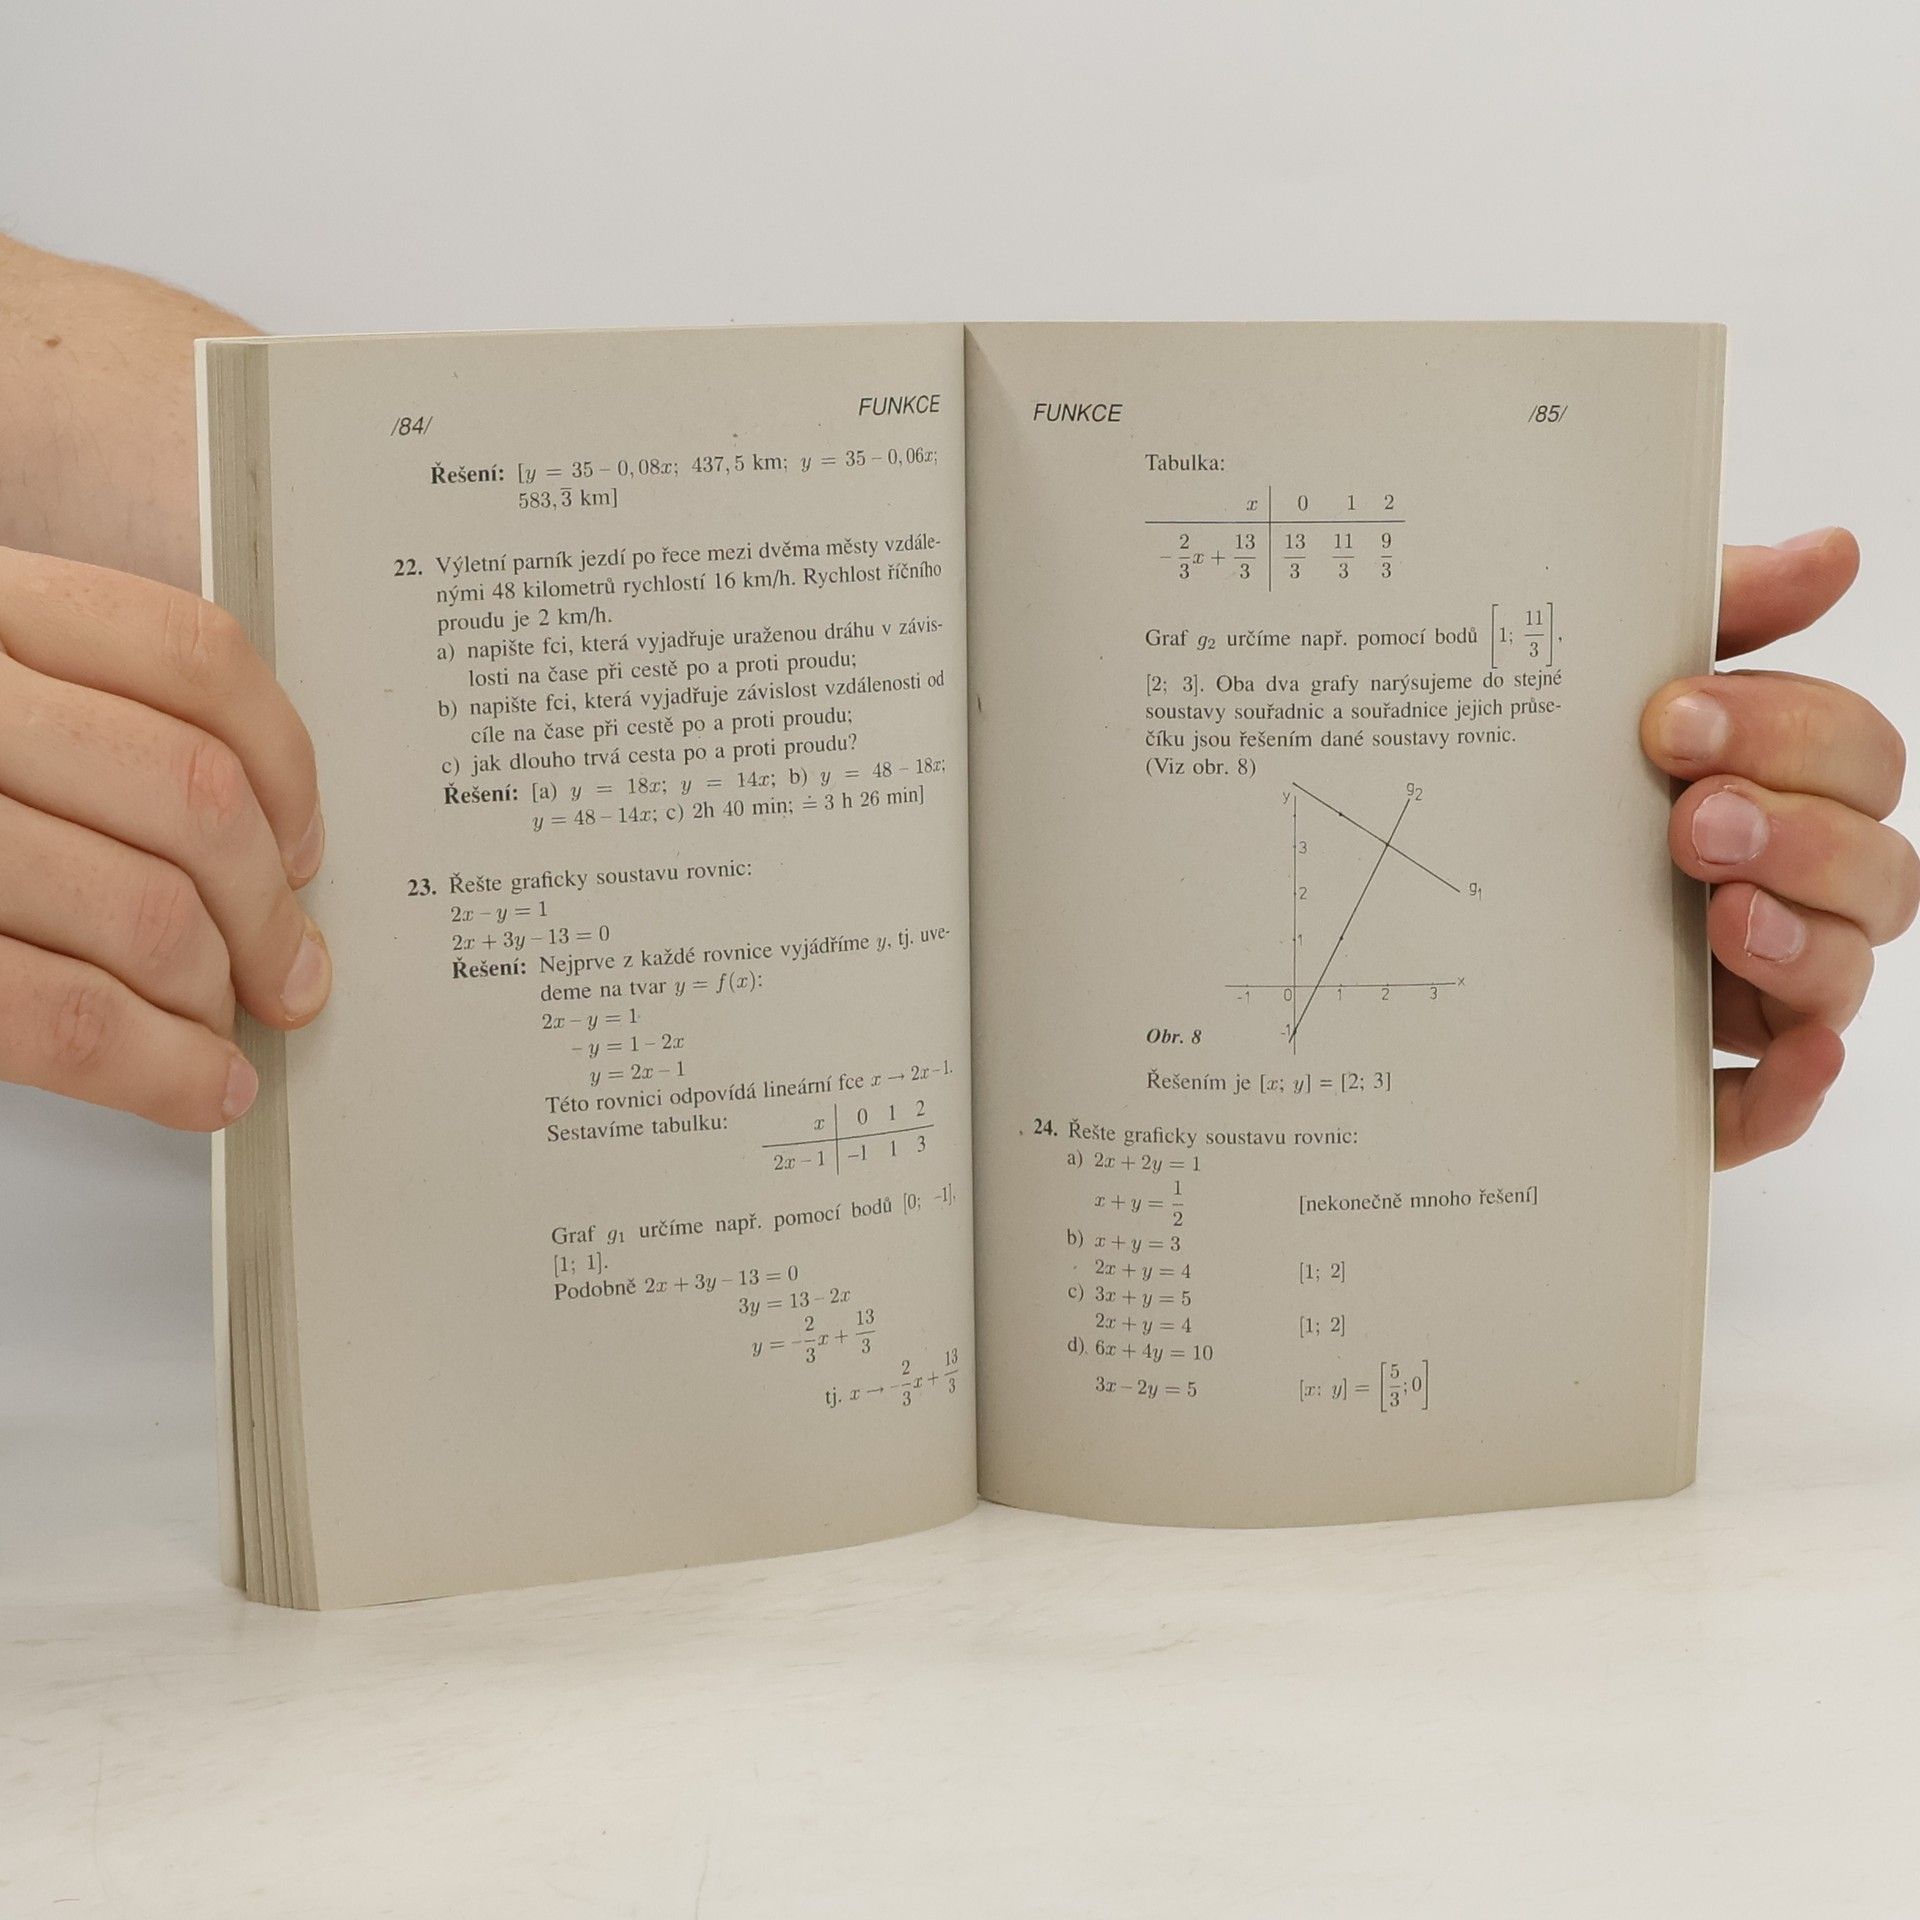 /84/ FUNKCE
Řešení: [y = 35 – 0,08x; 437,5 km; y = 35 – 0,06x;
583,3̅ km]
22. Výletní parník jezdí po řece mezi dvěma městy vzdále-
nými 48 kilometrů rychlostí 16 km/h. Rychlost říčního
proudu je 2 km/h.
a) napište fci, která vyjadřuje uraženou dráhu v závis-
losti na čase při cestě po a proti proudu;
b) napište fci, která vyjadřuje závislost vzdálenosti od
cíle na čase při cestě po a proti proudu;
c) jak dlouho trvá cesta po a proti proudu?
Řešení: [a) y = 18x; y = 14x; b) y = 48 – 18x;
y = 48 – 14x; c) 2h 40 min; ≐ 3 h 26 min]
23. Řešte graficky soustavu rovnic:
2x – y = 1
2x + 3y – 13 = 0
Řešení: Nejprve z každé rovnice vyjádříme y, tj. uve-
deme na tvar y = f(x):
2x – y = 1
– y = 1 – 2x
y = 2x – 1
Této rovnici odpovídá lineární fce x → 2x–1.
Sestavíme tabulku:
x 0 1 2
2x – 1 –1 1 3
Graf g₁ určíme např. pomocí bodů [0; –1],
[1; 1].
Podobně 2x + 3y – 13 = 0
3y = 13 – 2x
y = –2/3x + 13/3
tj. x → –2/3x + 13/3
FUNKCE /85/
Tabulka:
x 0 1 2
–2/3x + 13/3 13/3 11/3 9/3
Graf g₂ určíme např. pomocí bodů [1; 11/3],
[2; 3]. Oba dva grafy narýsujeme do stejné
soustavy souřadnic a souřadnice jejich průse-
číku jsou řešením dané soustavy rovnic.
(Viz obr. 8)
y g₂
3
g₁
2
1
-1 0 1 2 3 x
-1
Obr. 8
Řešením je [x; y] = [2; 3]
24. Řešte graficky soustavu rovnic:
a) 2x + 2y = 1
x + y = 1/2 [nekonečně mnoho řešení]
b) x + y = 3
2x + y = 4 [1; 2]
c) 3x + y = 5
2x + y = 4 [1; 2]
d). 6x + 4y = 10
3x – 2y = 5 [x: y] = [5/3;0]